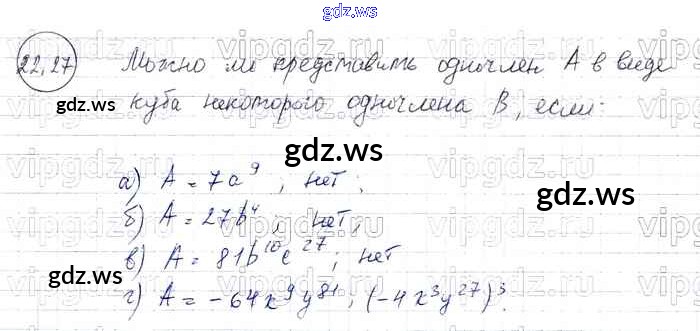 gdz.ws
22.27 Можно ли представить одночлен A в виде
куба некоторого одночлена B, если:
gdz.ws
gdz.ws
а) A = 7a⁹; нет;
gdz.ws
б) A = 27b⁴, нет,
в) A = 81b¹⁰c²⁷; нет
gdz.ws
г) A = -64x⁹y⁸¹; (-4x³y²⁷)³.
gdz.ws